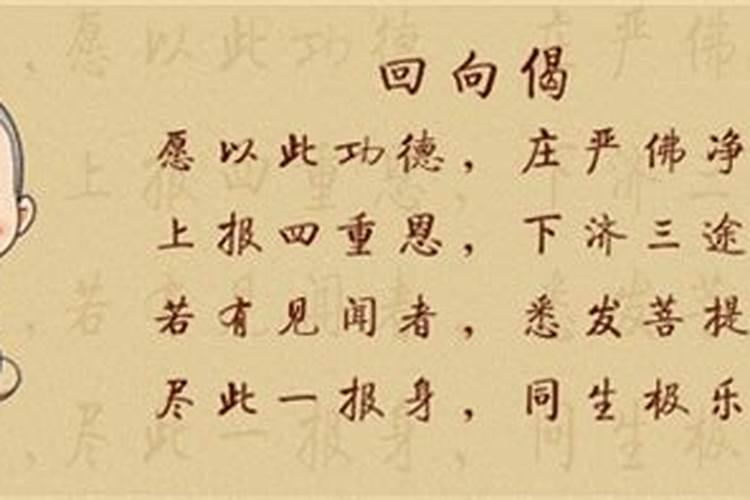 回向偈
愿以此功德，庄严佛净
上报四重恩，下济三途
若有见闻者，悉发菩提
尽此一报身，同生极乐